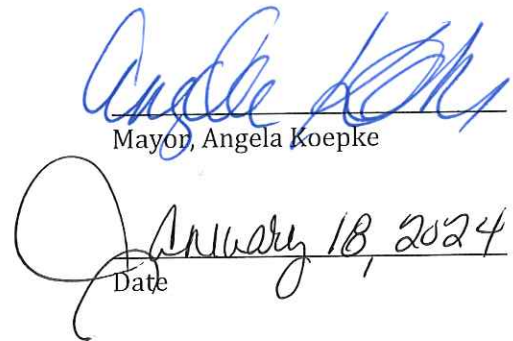 Angela Koepke
Mayor, Angela Koepke
January 18, 2024
Date